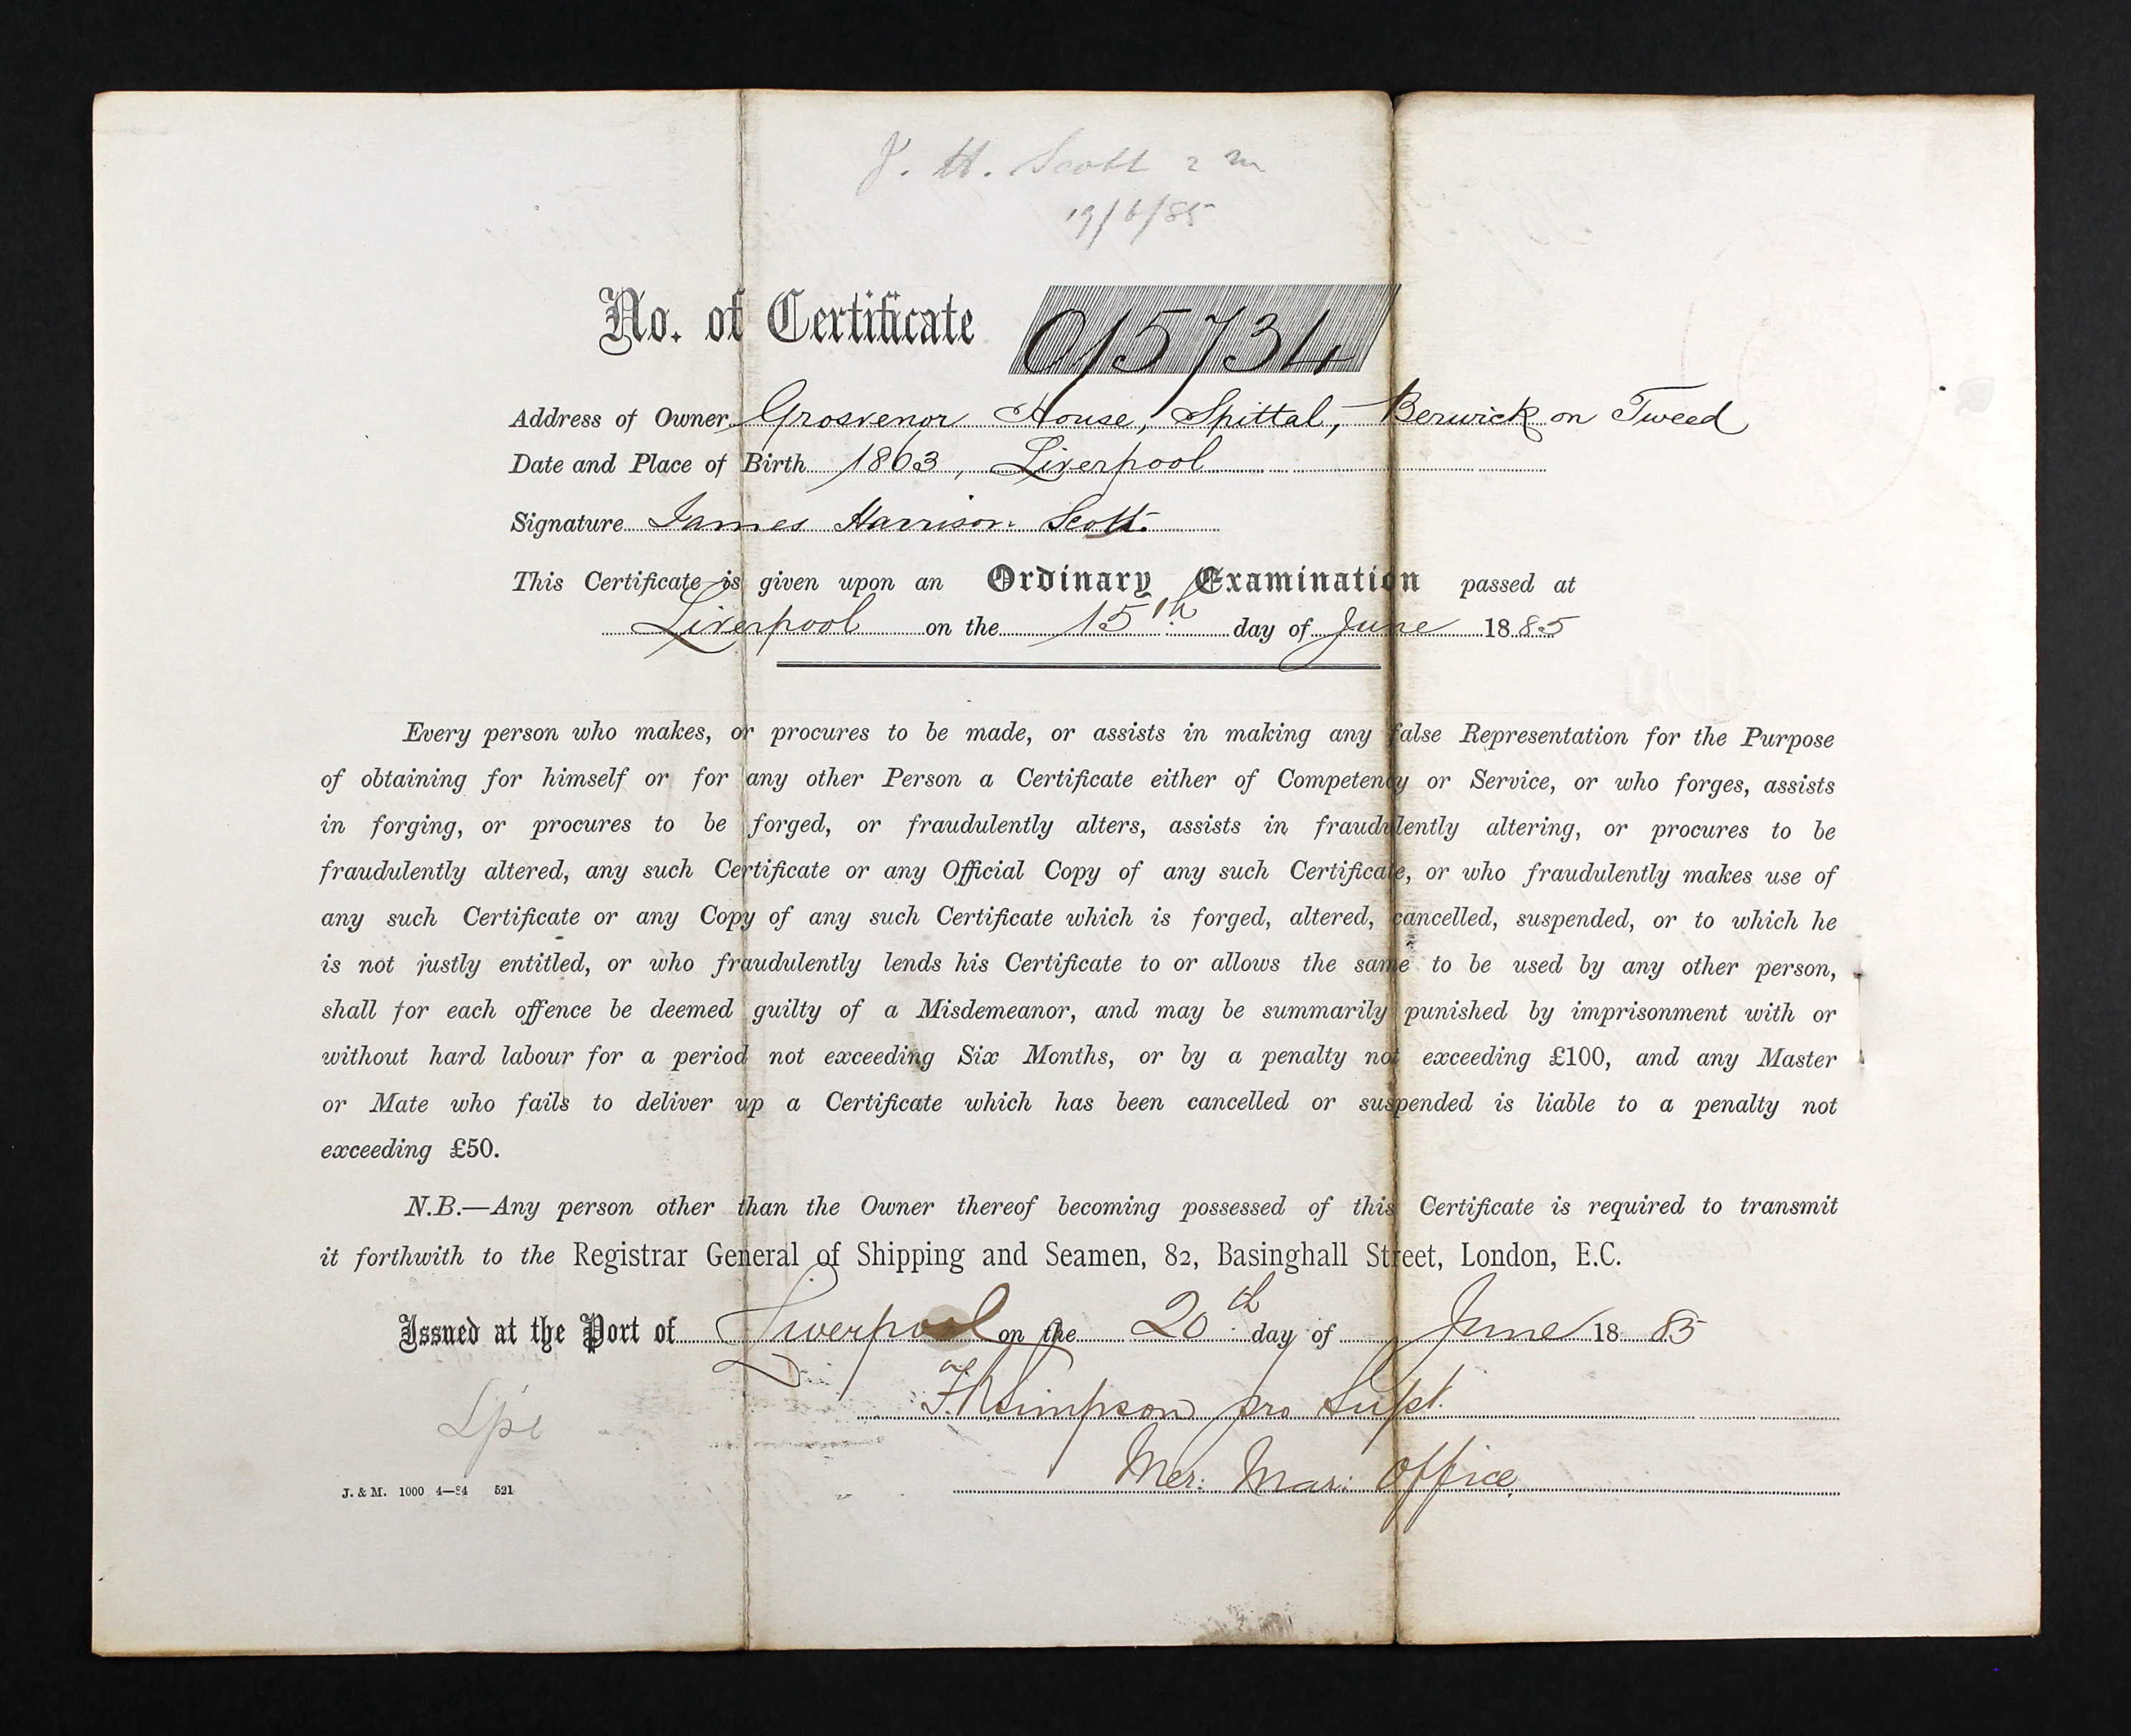 J. H. Scott 2 m
19/6/85
No. of Certificate 015734
Address of Owner Grosvenor House, Spittal, Berwick on Tweed
Date and Place of Birth 1863, Liverpool
Signature James Harrison Scott.
This Certificate is given upon an Ordinary Examination passed at
Liverpool on the 15th day of June 1885
Every person who makes, or procures to be made, or assists in making any false Representation for the Purpose
of obtaining for himself or for any other Person a Certificate either of Competency or Service, or who forges, assists
in forging, or procures to be forged, or fraudulently alters, assists in fraudulently altering, or procures to be
fraudulently altered, any such Certificate or any Official Copy of any such Certificate, or who fraudulently makes use of
any such Certificate or any Copy of any such Certificate which is forged, altered, cancelled, suspended, or to which he
is not justly entitled, or who fraudulently lends his Certificate to or allows the same to be used by any other person,
shall for each offence be deemed guilty of a Misdemeanor, and may be summarily punished by imprisonment with or
without hard labour for a period not exceeding Six Months, or by a penalty not exceeding £100, and any Master
or Mate who fails to deliver up a Certificate which has been cancelled or suspended is liable to a penalty not
exceeding £50.
N.B.—Any person other than the Owner thereof becoming possessed of this Certificate is required to transmit
it forthwith to the Registrar General of Shipping and Seamen, 82, Basinghall Street, London, E.C.
Issued at the Port of Liverpool on the 20th day of June 1885
Simpson pro Supt.
Lpl
Mer: Mar: Office
J. & M. 1000 4—84 521